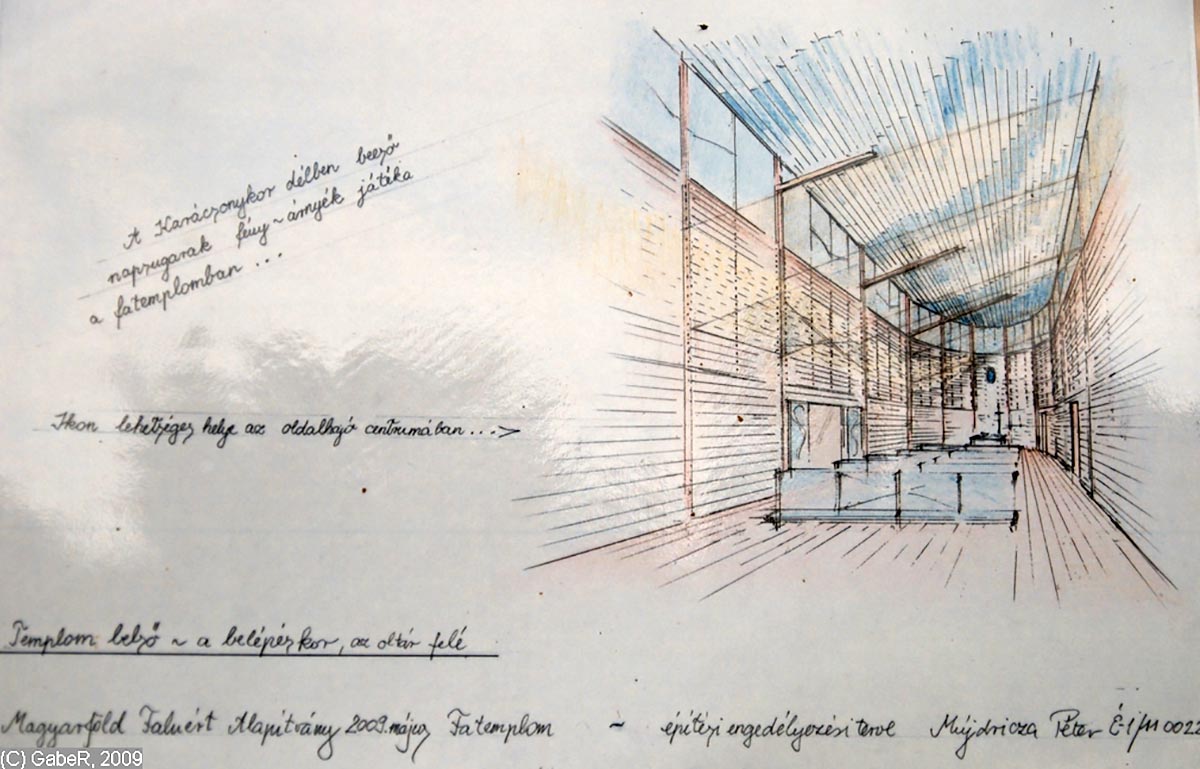 A Karácsonykor délben beeső
napsugarak fény ~ árnyék játéka
a fatemplomban ...
Ikon lehetséges helye az oldalhajó centrumában ...>
Templom belső ~ a belépéskor, az oltár felé
Magyarföld Faluért Alapítvány 2009. május Fatemplom ~ építési engedélyezési terve Mújdricza Péter É-1/11 0022
(C) GabeR, 2009